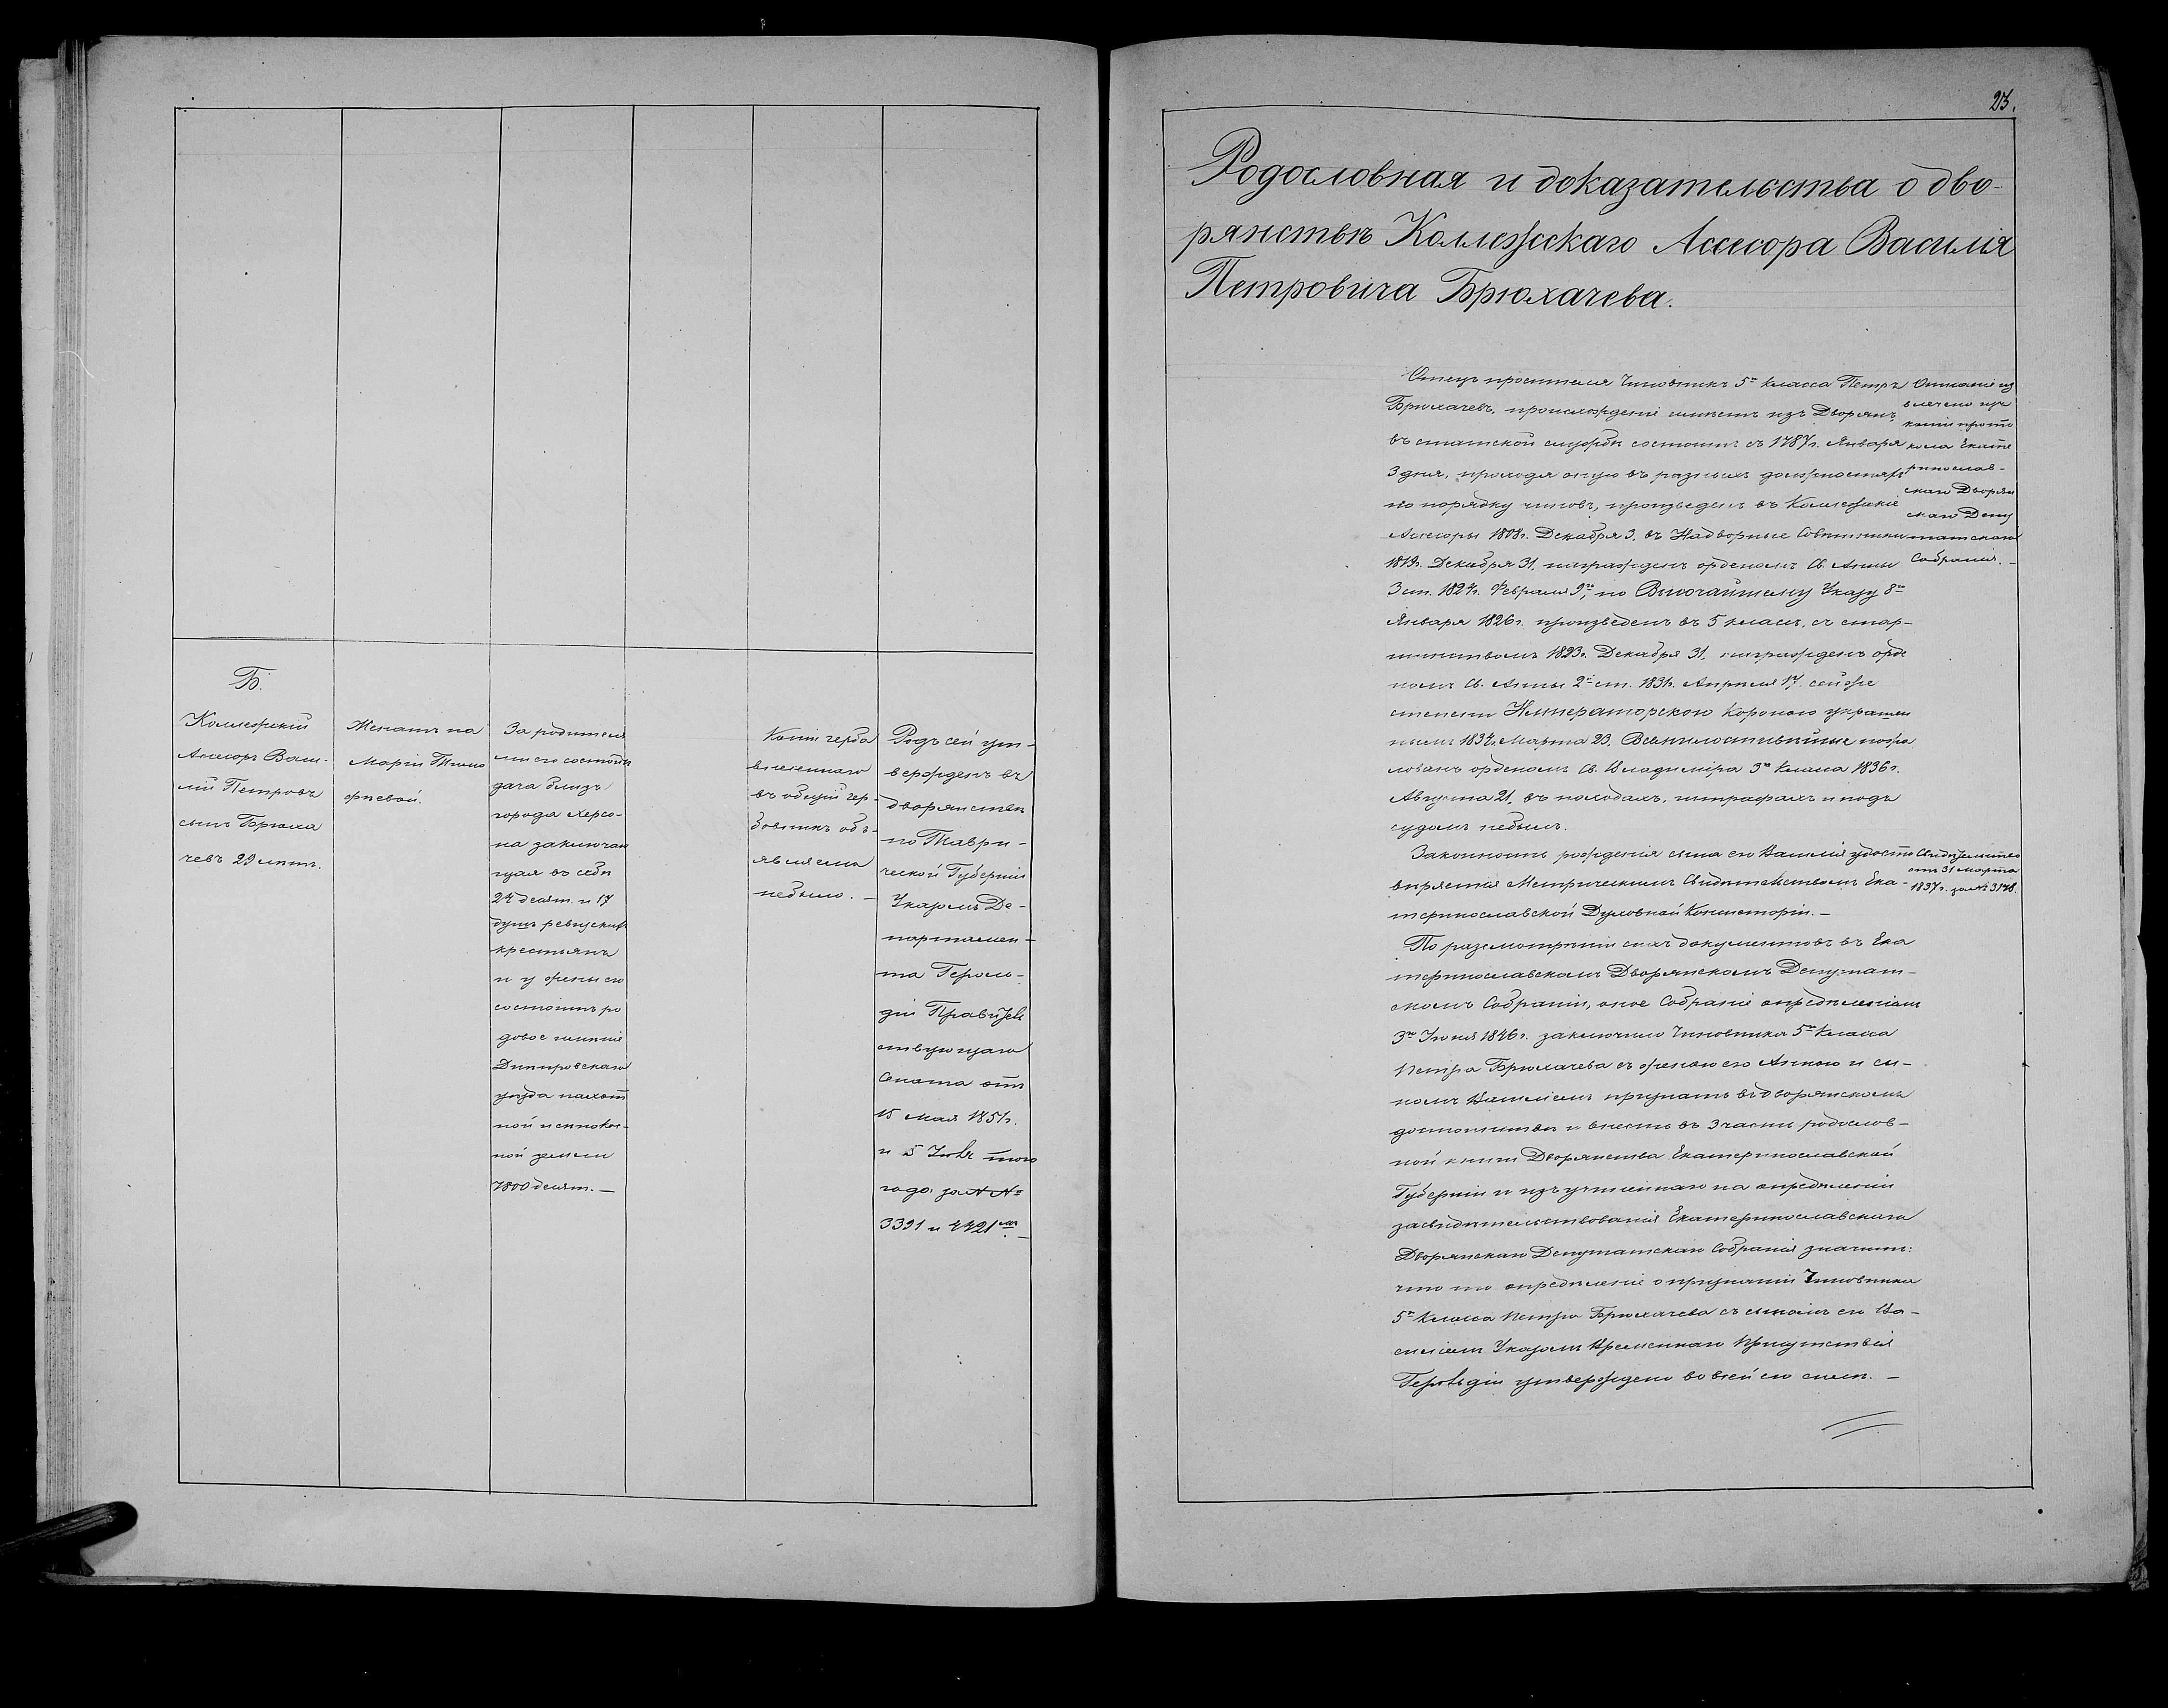 Б.
Коллежскій
Асессоръ Васи-
лій Петровъ
сынъ Брюха
чевъ 29 лѣтъ.
Женатъ на
Маріи Тимо
фѣевой.
За родителя
ми его состоитъ
дача близъ
города Херсо-
на заключаю
щая въ себѣ
24 десят. и 17
душъ ревизскихъ
крестьянъ
и у жены его
состоитъ ро
довое имѣніе
Днѣпровскаго
уѣзда пахот
ной и сѣнокос-
ной земли
7800 десят. —
Копіи герба
внесеннаго
въ общій гер-
бовникъ объ-
явлено
небыло. —
Родъ сей ут-
вержденъ въ
дворянствѣ
по Таври-
ческой Губерніи
Указомъ Де-
партамен-
та Герольд-
діи Правитель
ствующаго
Сената отъ
15 Мая 1851 г.
и 5 Іюля того
года за №№
3391 и 4421 мъ. —
23.
Родословная и доказательства о дво-
рянствѣ Коллежскаго Ассесора Василія
Петровича Брюхачева.
Отецъ просителя Чиновникъ 5го класса Петръ
Брюхачевъ, происхожденіе имѣетъ изъ Дворянъ,
въ статской службѣ состоитъ съ 1787 г. Января
3 дня, проходя оную въ разныхъ должностяхъ
по порядку чиновъ, произведенъ въ Коллежскіе
Асессоры 1808 г. Декабря 3, въ Надворные Совѣтники
1819 г. Декабря 31, награжденъ орденомъ Св. Анны
3 ст. 1824 г. Февраля 9го, по Высочайшему Указу 8го
Января 1826 г. произведенъ въ 5 классъ, съ стар-
шинствомъ 1823 г. Декабря 31, награжденъ орде
номъ Св. Анны 2й ст. 1831 г. Апрѣля 17, сей же
степени Императорскою Короною украшен
нымъ 1834 г. Марта 23, Всемилостивѣйше пожа
лованъ орденомъ Св. Владиміра 3го класса 1836 г.
Августа 21, въ походахъ, штрафахъ и подъ
судомъ небылъ.
Законность рожденія сына его Василія удосто
вѣряется Метрическимъ Свидѣтельствомъ Ека-
теринославской Духовной Консисторіи. —
По разсмотрѣніи сихъ документовъ въ Ека
теринославскомъ Дворянскомъ Депутат-
скомъ Собраніи, оное Собраніе опредѣленіемъ
3го Іюня 1846 г. заключило Чиновника 5го Класса
Петра Брюхачева съ женою его Анною и сы-
номъ Василіемъ признать въ дворянскомъ
достоинствѣ и внести въ 3 часть родослов-
ной книги Дворянства Екатеринославской
Губерніи и изъ учиненнаго на опредѣленіи
засвидѣтельствованія Екатеринославскаго
Дворянскаго Депутатскаго Собранія значитъ:
что то опредѣленіе о признаніи Чиновника
5го Класса Петра Брюхачева съ сыномъ его Ва-
силіемъ Указомъ Временнаго Присутствія
Герольдіи утверждено во всей его силѣ. —
Описаніе из
влечено изъ
копіи прото
кола Екате
ринослав-
скаго Дворян
скаго Депу
татскаго
Собранія. —
Свидѣтельство
отъ 31 Марта
1837 г. за № 3178.